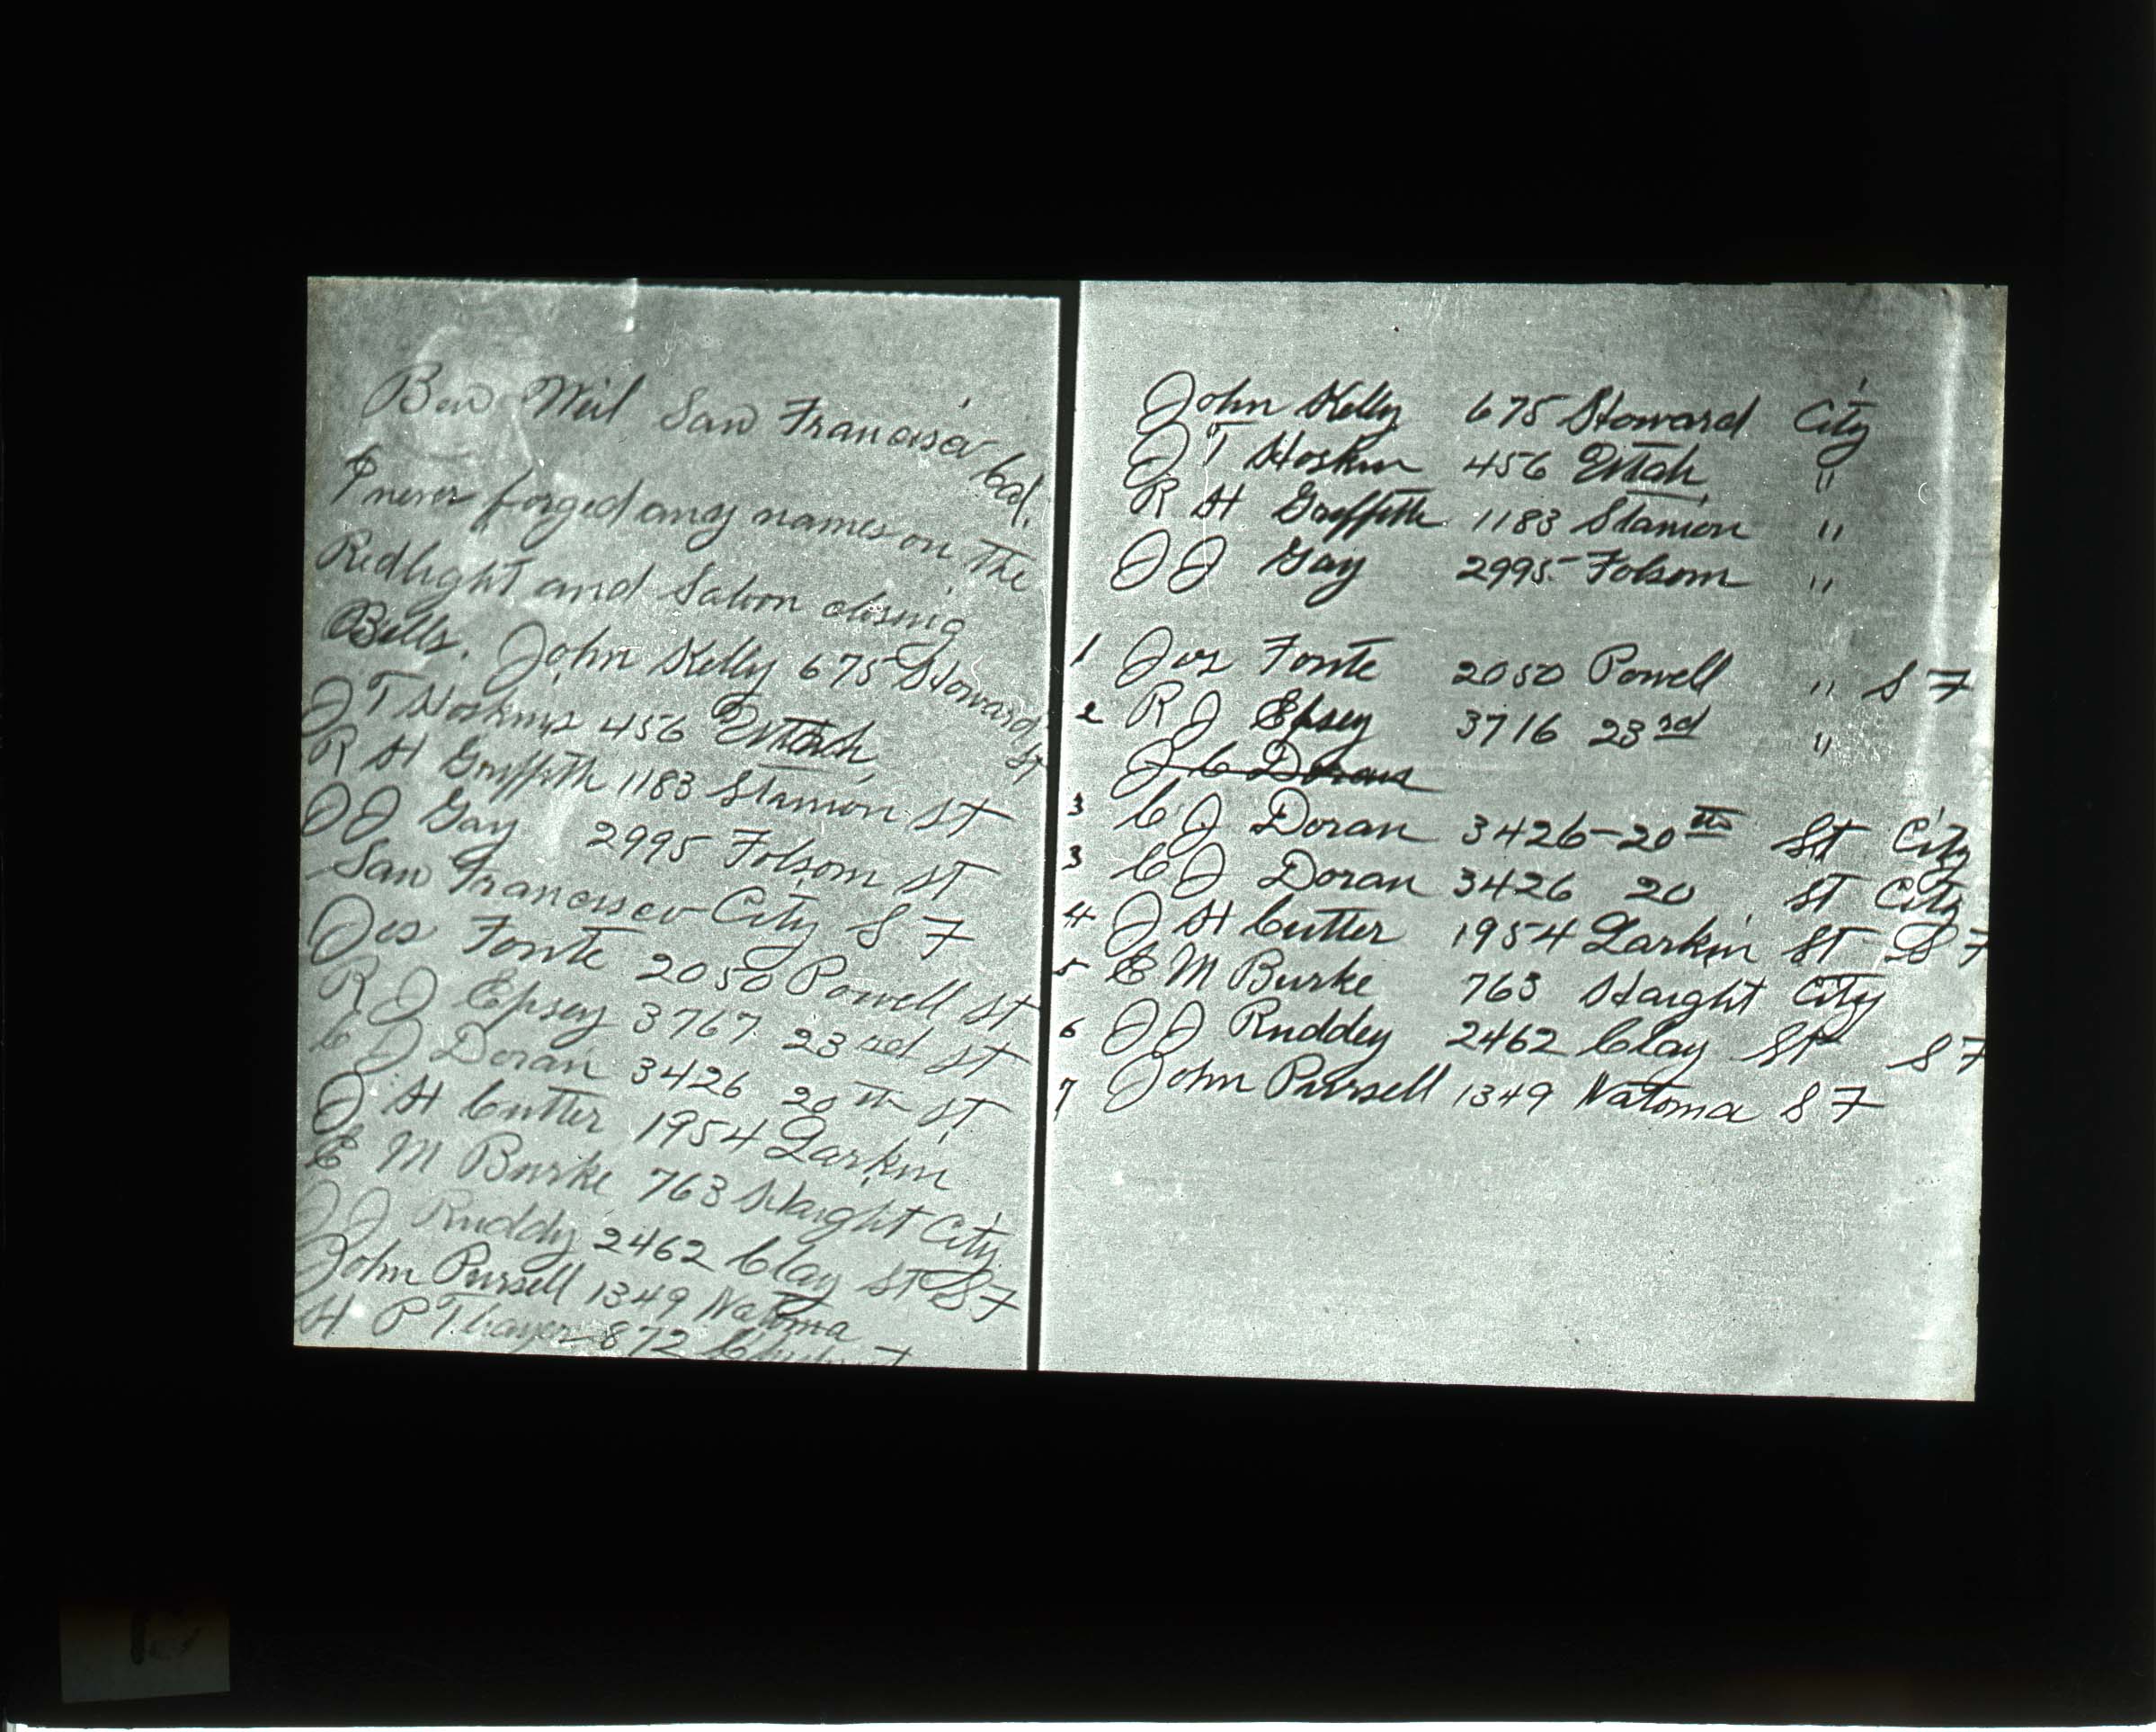 Ben Weil San Francisco Cal.
I never forged any names on the
Redlight and Saloon closing
Bills. John Kelly 675 Howard
St
J T Hoskins 456 Utah
R H Griffith 1183 Stanion St
J J Gay 2995 Folsom St
San Francisco City S F
Jos Fonte 2050 Powell St
R J Epsey 3767 23rd St
C J Doran 3426 20th St
J H Cutter 1954 Larkin
E M Burke 763 Haight City
J J Ruddy 2462 Clay St S F
John Pursell 1349 Natoma
H P Thayer 872
John Kelly 675 Howard City
J T Hoskin 456 Utah "
R H Griffith 1183 Stanion "
J J Gay 2995 Folsom "
1 Jos Fonte 2050 Powell " S F
2 R J Epsey 3716 23rd "
J C Doran
3 C J Doran 3426-20th St City
3 C J Doran 3426 20 St City
4 J H Cutter 1954 Larkin St S F
5 E M Burke 763 Haight City
6 J J Ruddey 2462 Clay St S F
7 John Pursell 1349 Natoma S F